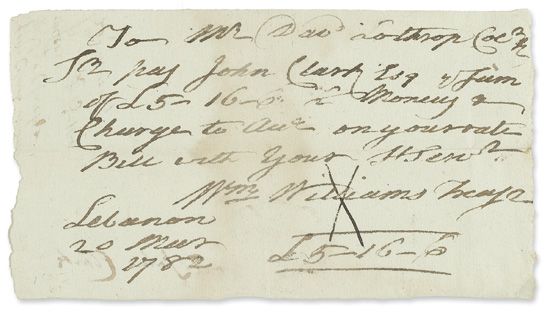 To Mr Dav.d Lothrop Col.r
Sr pay John Clark Esq ye Sum
of £5-16-6 Money &
Charge to Acc on your rate
Bill with Your H Serv.t
Wm Williams Treasr
Lebanon
20
1782
£5-16-6